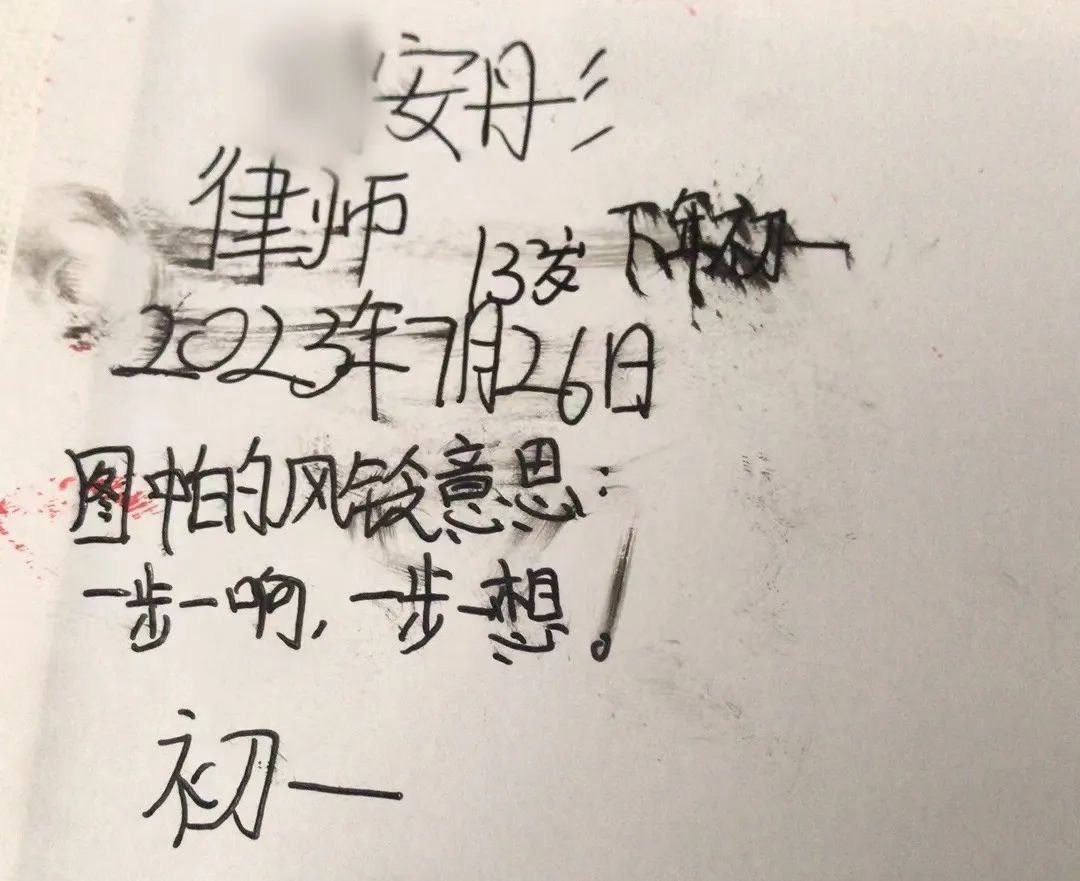 安彤
律师
13岁 下年初一
2023年7月26日
图帕的风铃意思:
一步一啊,一步一想!
初一